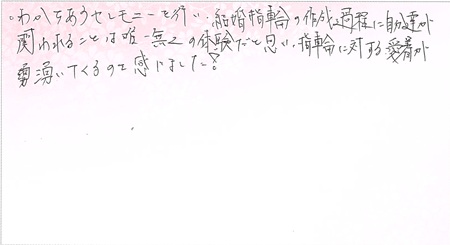 ・わかちあうセレモニーを行い、結婚指輪の作成過程に自分達が
関われることは唯一無二の体験だと思い、指輪に対する愛着が
湧いてくるのを感じました!